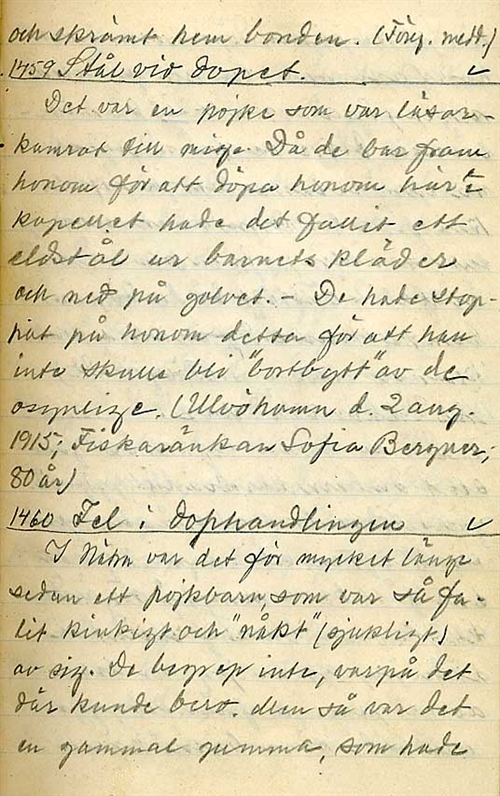 och skrämt hem bonden. (Förg. medd.)
1459 Stål vid dopet.
Det var en pojke som var läsar-
kamrat till mig. Då de bar fram
honom för att döpa honom här i
kapellet hade det fallit ett
eldstål ur barnets kläder
och ned på golvet. – De hade stop-
pat på honom detta för att han
inte skulle bli "bortbytt" av de
osynlige. (Ulvöhamn d. 2 aug.
1915; Fiskaränkan Sofia Bergner,
80 år)
1460 Fel i dophandlingen
I Nätra var det för mycket länge
sedan ett pojkbarn, som var så fa-
lit kinkigt och "nåkt" (sjukligt)
av sig. De begrep inte, varpå det
där kunde bero. Men så var det
en gammal gumma, som hade